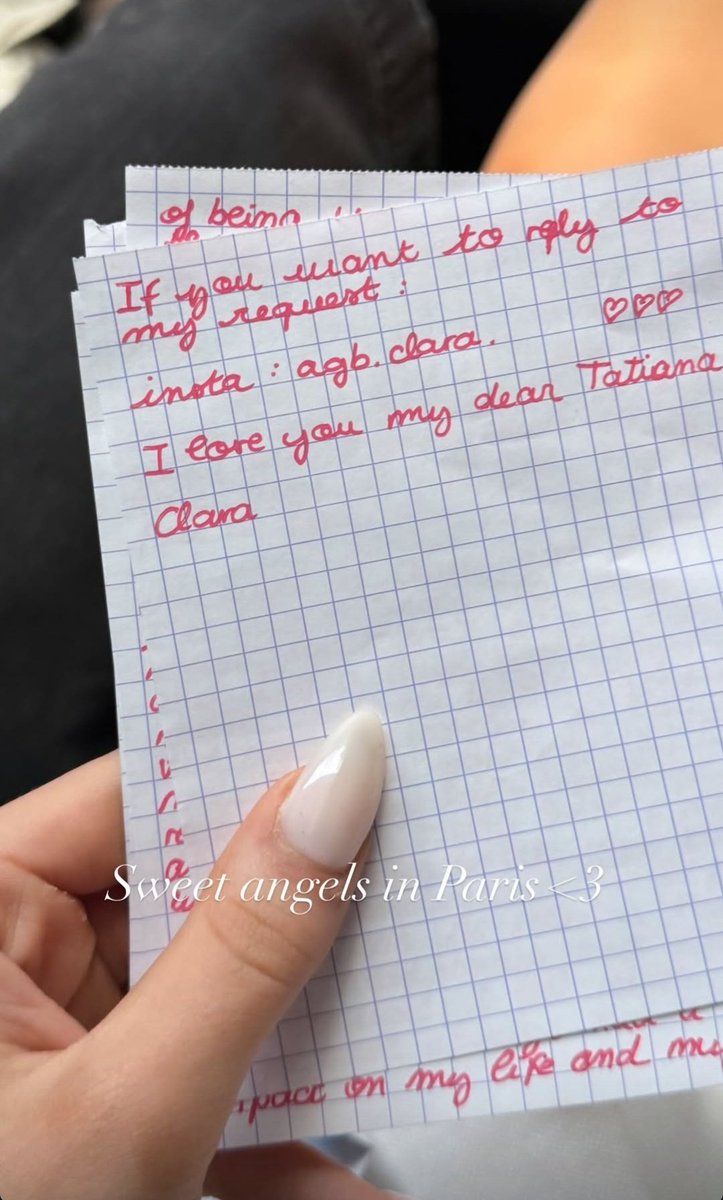 of being
If you want to reply to
my request :
insta : agb.clara. ♡♡♡
I love you my dear Tatiana
Clara
Sweet angels in Paris <3
on my life and my